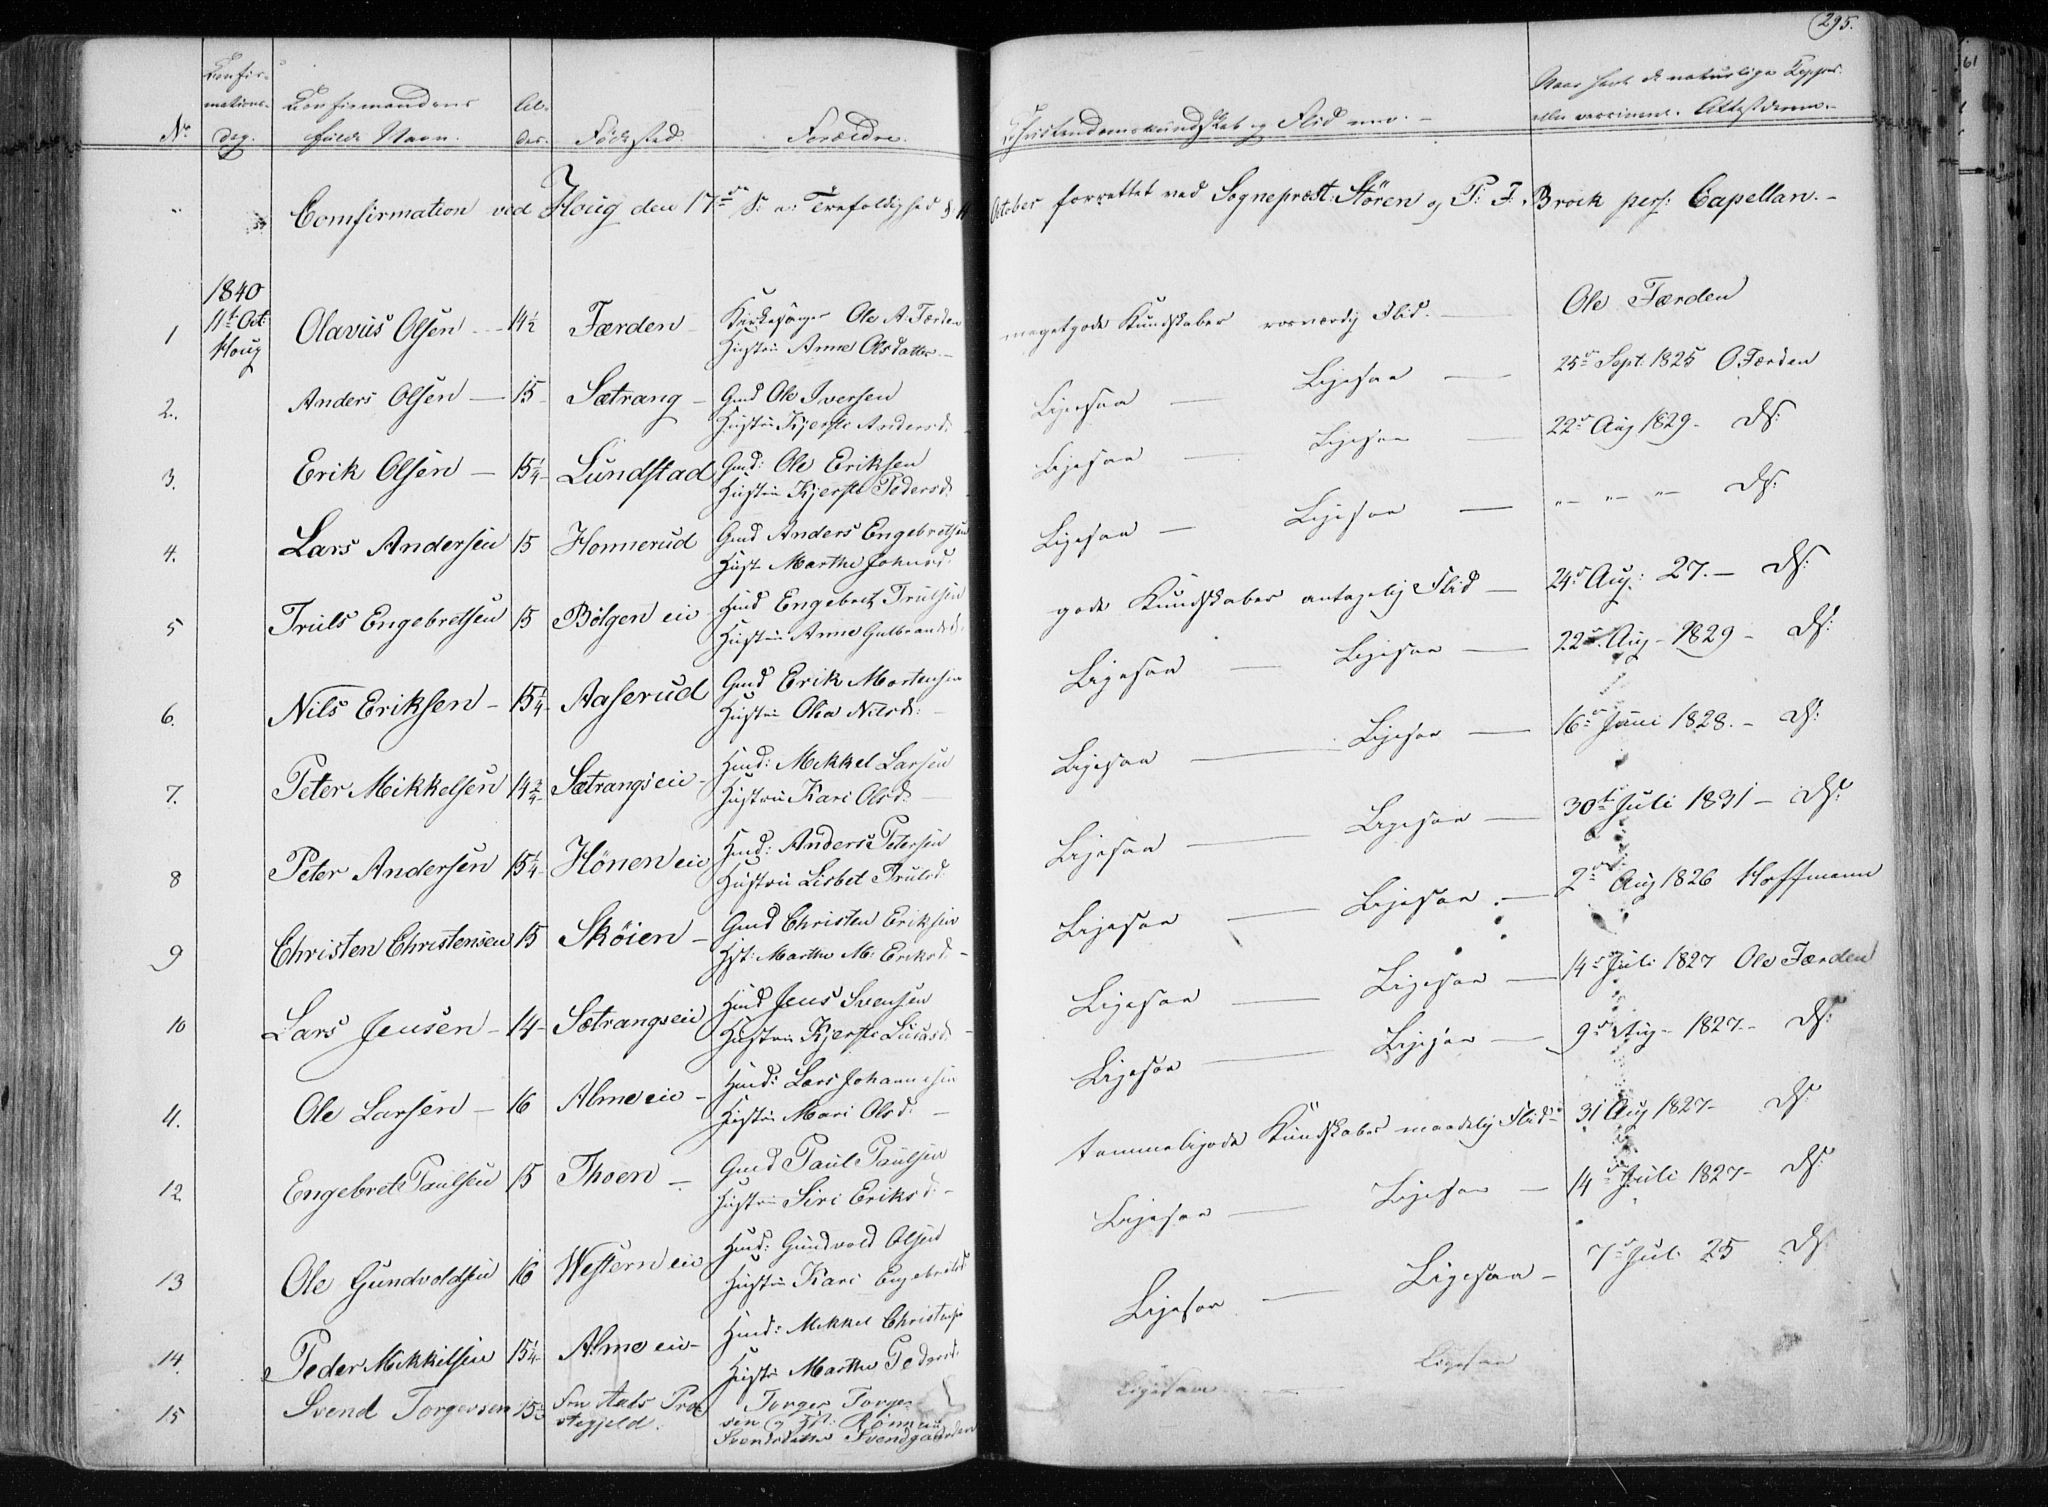 295.
No
Confir-
mations-
dag.
Confirmandens
fulde Navn.
Al-
der.
Födested.
Forældre.
Christendomskundskab og Flid m.v.
Naar havt de naturlige Kopper
eller vaccineret. Attest derom.
Comfirmation ved Houg den 17de S: a: Trefoldighed d: 11 October forrettet ved Sognepræst: Stören og P: F: Brock pers: Capellan.
1840
11t Oct:
Houg
1 Olavus Olsen 14½ Færden Kirkesanger Ole A. Færden megetgode Kundskaber rosværdig Flid. Ole Færden
Hustru Anne Olsdatter
2. Anders Olsen 15 Sætrang Gmd Ole Iversen Ligesaa Ligesaa 25de Sept: 1825 O Færden
Hustru Kjersti Andersd.
3. Erik Olsen 15¼ Lundstad Gmd: Ole Eriksen Ligesaa Ligesaa 22de Aug 1829 Ds:
Hustru Kjersti Pedersd.
4. Lars Andersen 15 Honnerud Gmd Anders Engebretsen Ligesaa Ligesaa " " " Ds:
Hust Marthe Johnsd.
5 Truls Engebretsen 15 Bölgen eie Hmd Engebret Trulsen gode Kundskaber antagelig Flid 24de Aug: 27. Ds:
Hustru Anne Gulbrandsd.
6. Nils Eriksen 15¼ Aaserud Gmd Erik Mortensen Ligesaa Ligesaa 22de Aug 1829 Ds:
Hustru Olea Nilsd:
7. Peter Mikkelsen 14¾ Sætrangs eie Hmd: Mikkel Larsen Ligesaa Ligesaa 16de Juni 1828. Ds:
Hustru Kari Olsd:
8 Peter Andersen 15¼ Hönen eie Hmd: Anders Petersen Ligesaa Ligesaa 30te Juli 1831 Ds:
Hustru Lisbet Trulsd:
9 Christen Christensen 15 Sköien Gmd Christen Eriksen Ligesaa Ligesaa 2de Aug 1826 Hoffmann
Hst: Marthe M: Eriksd:
10 Lars Jensen 14 Sætrangseie Hmd Jens Svensen Ligesaa Ligesaa 14de Juli 1827 Ole Færden
Hustru Kjersti Lucasd
11. Ole Larsen 16 Alme eie Hmd: Lars Johannesen Ligesaa Ligesaa 9de Aug 1827 Ds:
Hustru Mari Olsd:
12. Engebret Paulsen 15 Thoen Gmd Paul Paulsen temmeligode Kundskaber maadelig Flid 31 Aug 1827 Ds:
Hustru Siri Eriksd:
13 Ole Gundvoldsen 16 Western eie Hmd: Gundvold Olsen Ligesaa Ligesaa 14de Juli 1827 Ds:
Hustru Kari Engebretsd
14. Peder Mikkelsen 15¼ Alme eie Hmd: Mikkel Christensen Ligesaa Ligesaa 7de Juli 25 Ds:
Hustr Marthe Pedersd:
15 Svend Torgersen 15½ Fra Aals Præ- Torger Torger- Ligesaa Ligesaa
stegjeld. sen og Hst:
Svendsdatter Svendgaarden